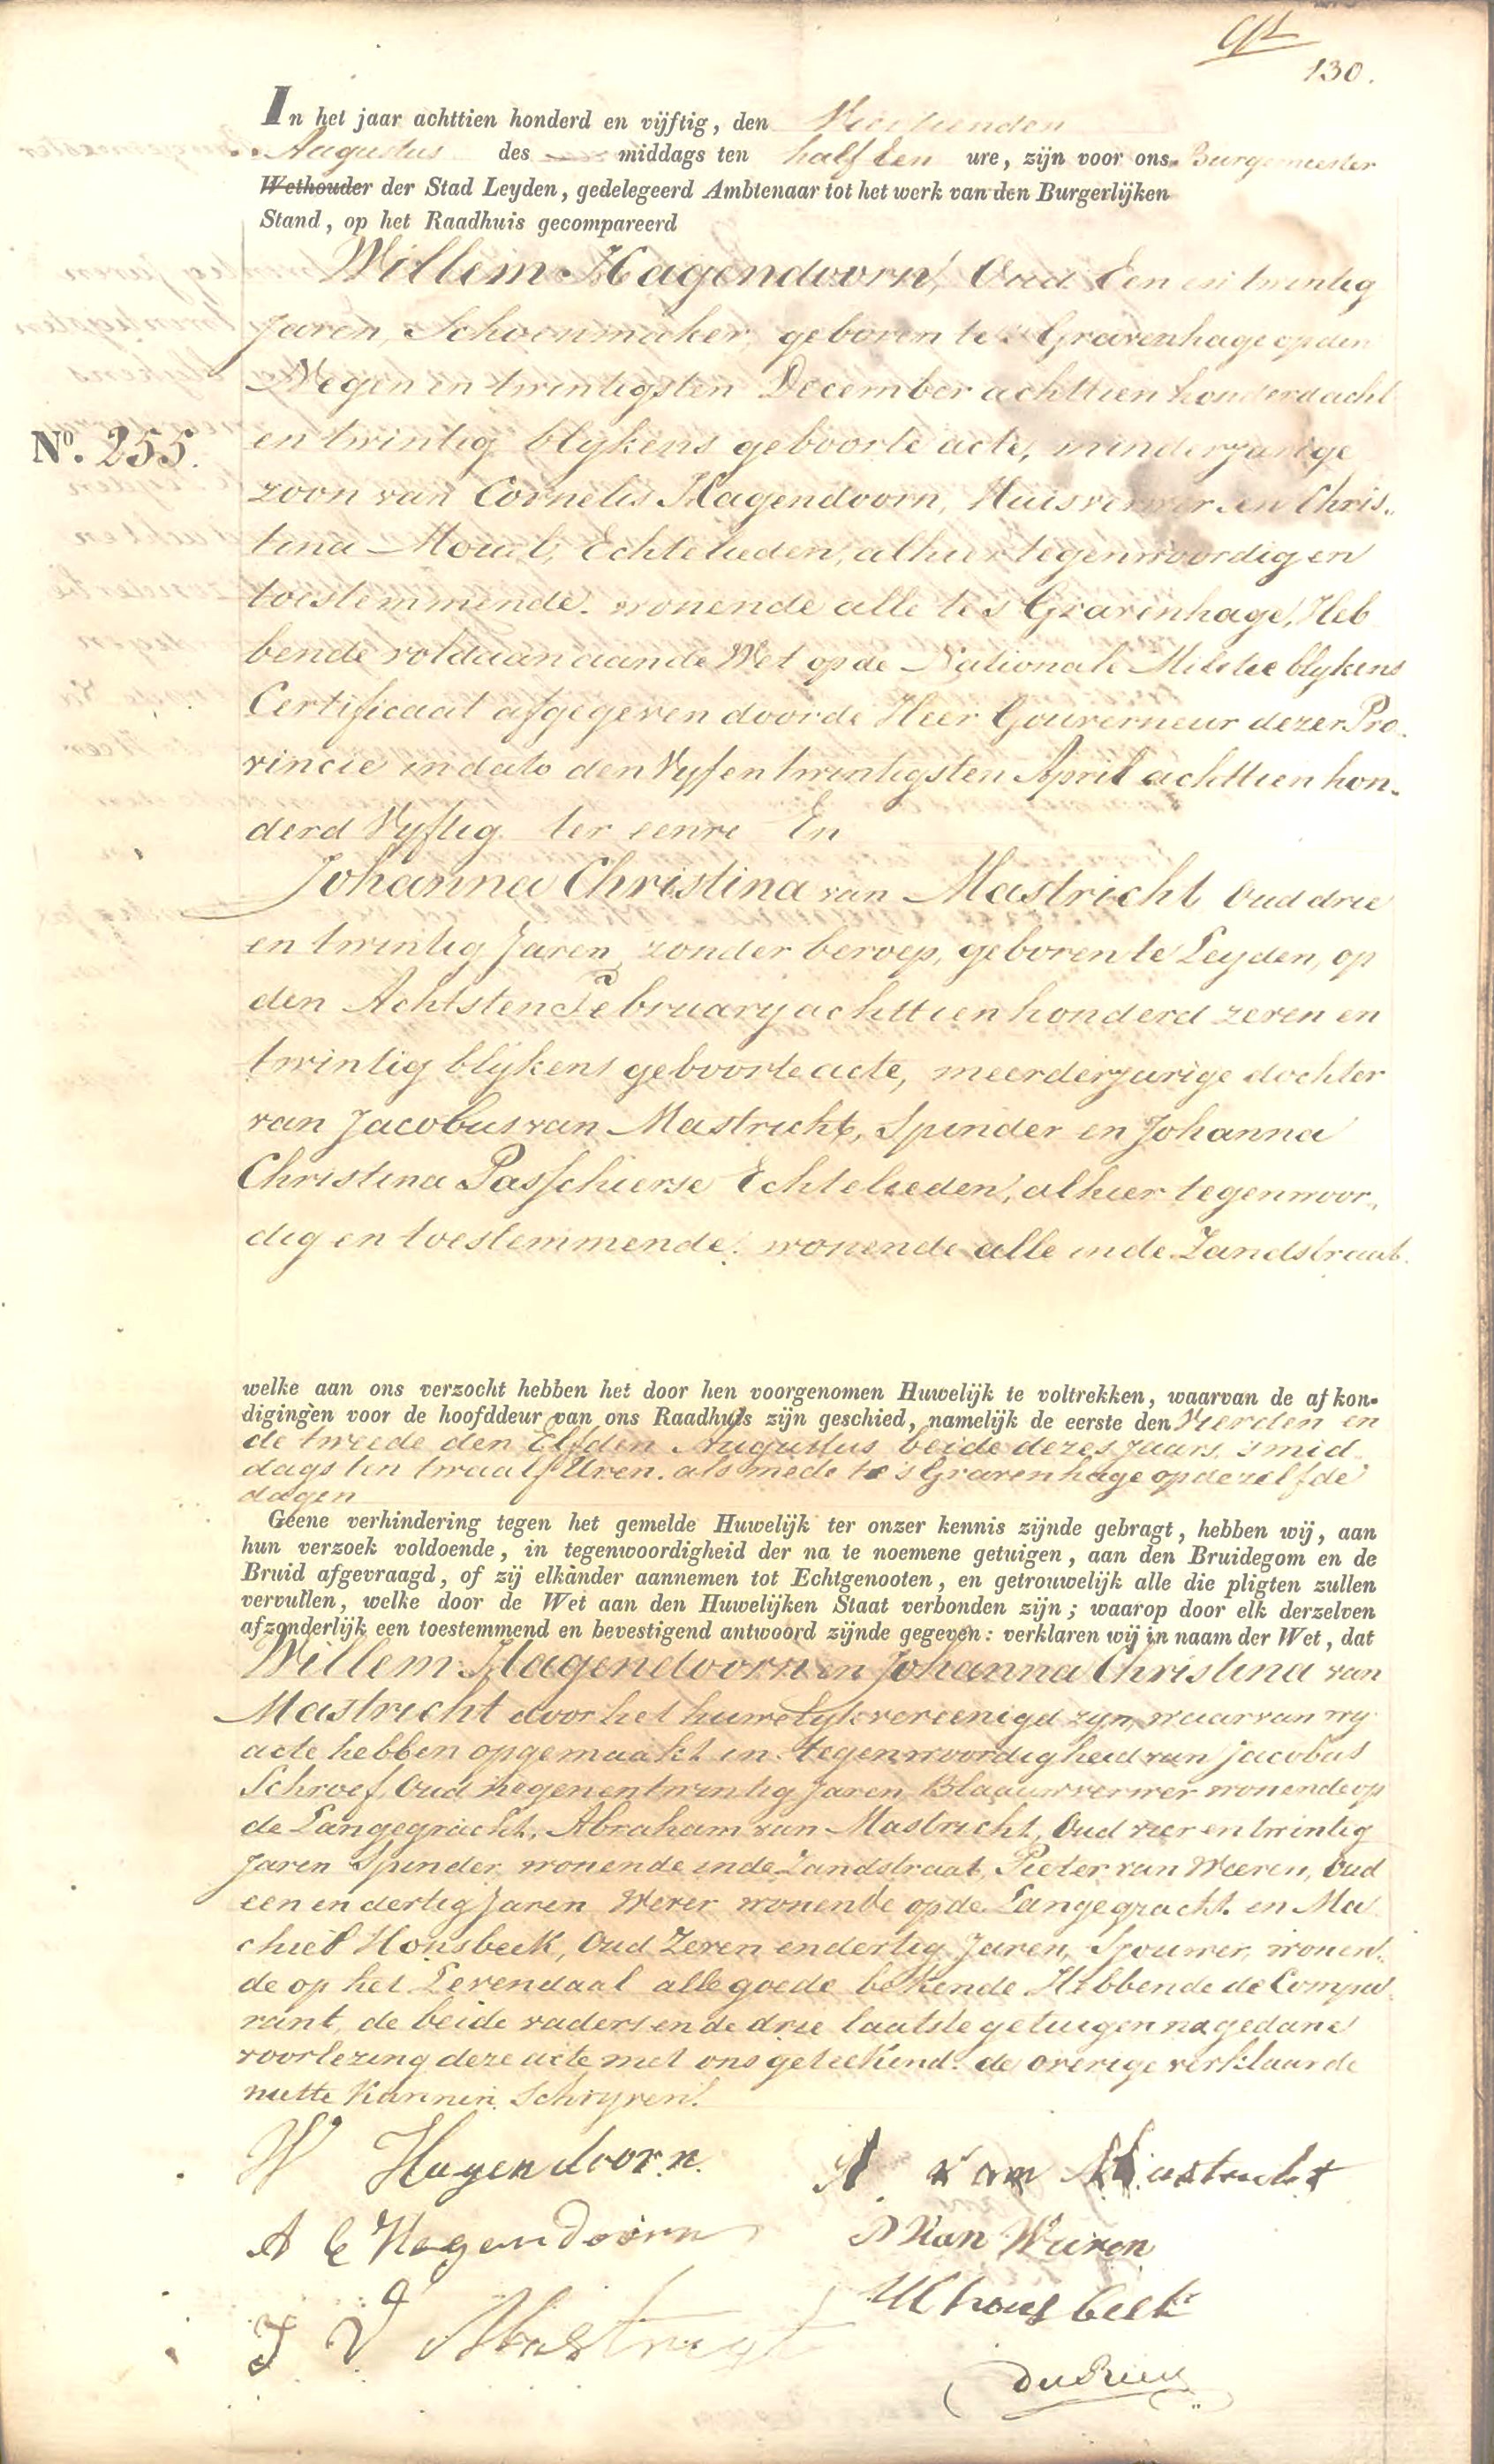 130.
In het jaar achttien honderd en vijftig, den Veertienden
Augustus des middags ten half tien ure, zijn voor ons Burgemeester
Wethouder der Stad Leyden, gedelegeerd Ambtenaar tot het werk van den Burgerlijken
Stand, op het Raadhuis gecompareerd
Willem Hagendoorn, Oud Een en twintig
Jaren, Schoenmaker, geboren te s Gravenhage op den
Negen en twintigsten December achttien honderd acht
No. 255.
en twintig blykens geboorte acte, minderjarige
zoon van Cornelis Hagendoorn, Huisverwer en Chris„
tina Mouil, Echtelieden, alhier tegenwoordig en
toestemmende. wonende alle te s Gravenhage, Heb
bende voldaan aan de Wet op de Nationale Militie blykens
Certificaat afgegeven door de Heer Gouverneur dezer Pro„
vincie in dato den Vyf en twintigsten April achttien hon„
derd Vyftig ter eenre En
Johanna Christina van Mastricht Oud drie
en twintig Jaren, zonder beroep, geboren te Leyden, op
den Achtsten February achttien honderd zeven en
twintig blykens geboorte acte, meerderjarige dochter
van Jacobus van Mastricht, Spinder en Johanna
Christina Passchierse Echtelieden, alhier tegenwoor„
dig en toestemmende. wonende alle in de Zandstraat.
welke aan ons verzocht hebben het door hen voorgenomen Huwelijk te voltrekken, waarvan de afkon-
digingen voor de hoofddeur van ons Raadhuis zijn geschied, namelijk de eerste den Vierden en
de tweede den Elfden Augustus beide dezes Jaars, s mid„
dags ten twaalf Uren. als mede te s Gravenhage op dezelfde
dagen
Geene verhindering tegen het gemelde Huwelijk ter onzer kennis zijnde gebragt, hebben wij, aan
hun verzoek voldoende, in tegenwoordigheid der na te noemene getuigen, aan den Bruidegom en de
Bruid afgevraagd, of zij elkander aannemen tot Echtgenooten, en getrouwelijk alle die pligten zullen
vervullen, welke door de Wet aan den Huwelijken Staat verbonden zijn; waarop door elk derzelven
afzonderlijk een toestemmend en bevestigend antwoord zijnde gegeven: verklaren wij in naam der Wet, dat
Willem Hagendoorn en Johanna Christina van
Mastricht door het huwelyk vereenigd zyn, waarvan wy
acte hebben opgemaakt in tegenwoordigheid van Jacobus
Schroef, Oud negen en twintig Jaren, Blaauwverwer wonende op
de Langegracht, Abraham van Mastricht, Oud vier en twintig
Jaren Spinder, wonende in de Zandstraat, Pieter van Weeren, Oud
een en dertig Jaren Wever wonende op de Langegracht en Ma
chiel Honsbeek, Oud Zeven en dertig Jaren, Spouwer, wonen„
de op het Levendaal alle goede bekende Hebbende de Compa„
rant, de beide vaders en de drie laatste getuigen na gedane
voorlezing deze acte met ons geteekend. de overige verklaarde
niet te Kunnen Schryven.
W Hagendoorn. A van Mastricht
A C Hagendoorn P Van Weeren
J V Mastrigt M honsbeek
Du Rieu